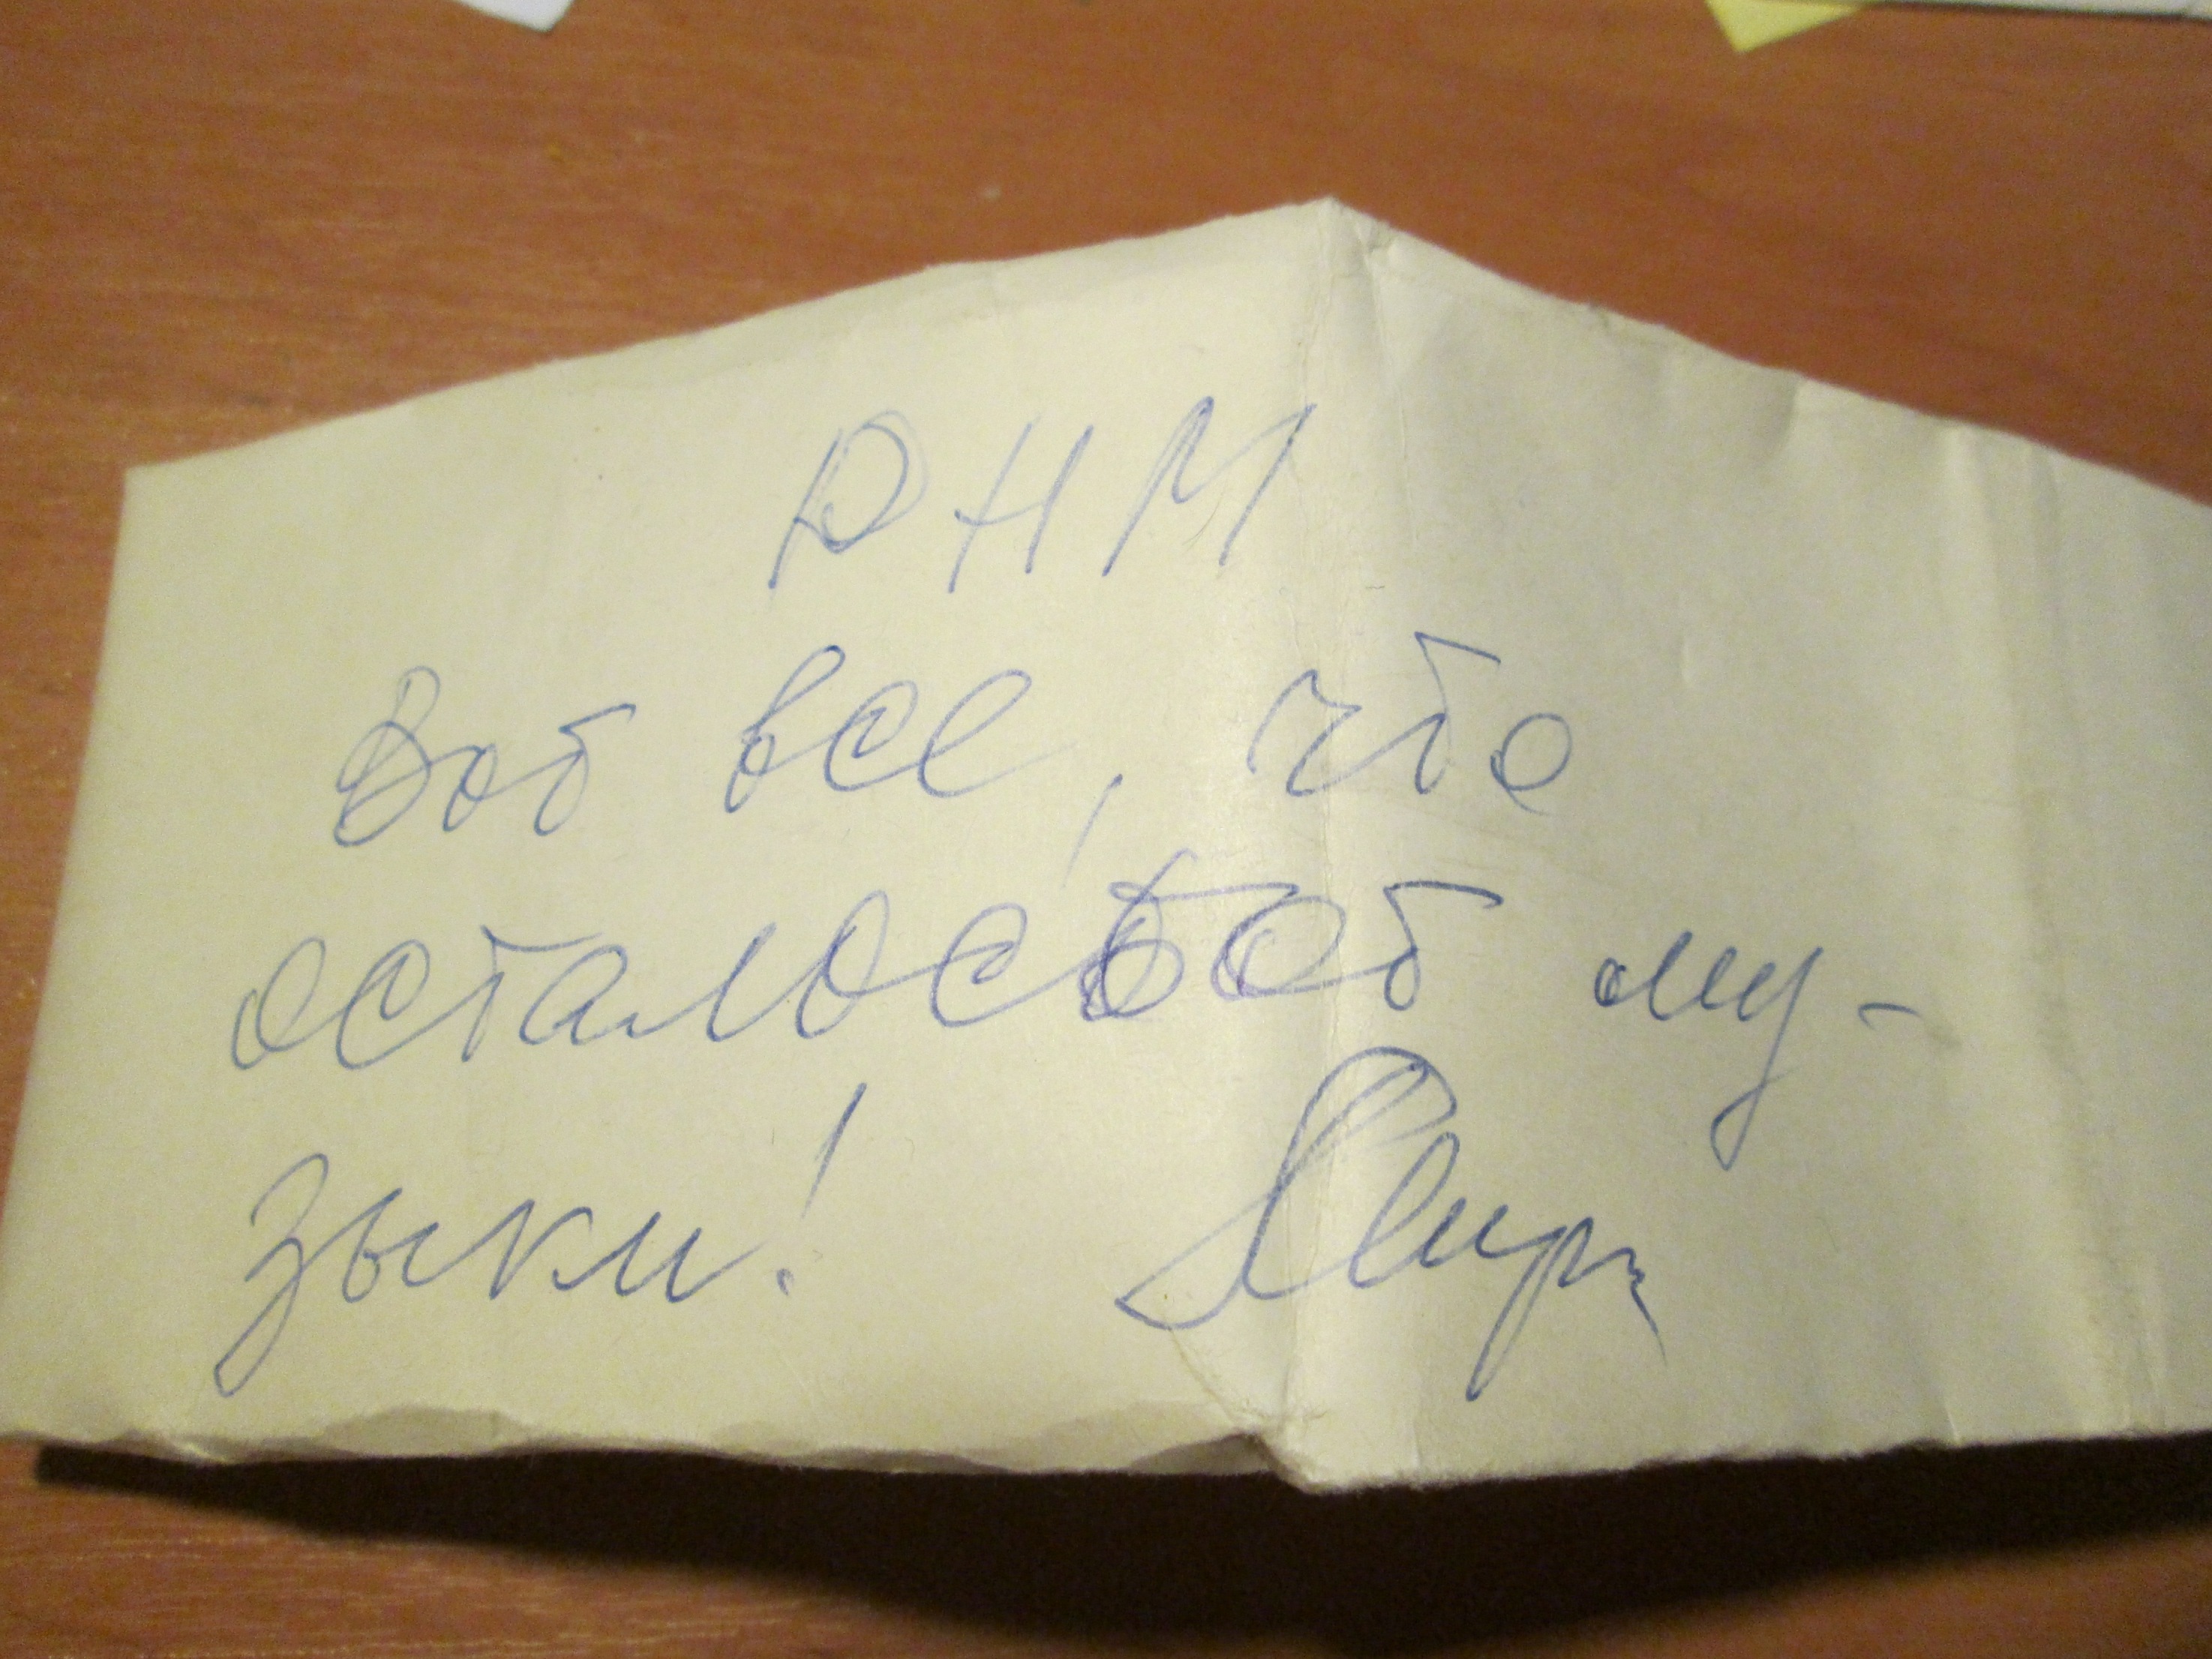 РНМ
Вот все, что
осталось от му-
зыки!